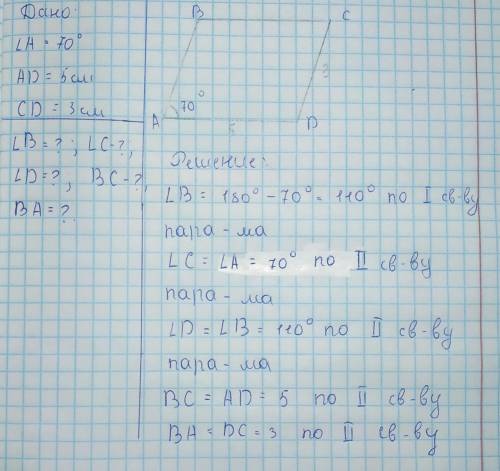 Дано:
∠A = 70°
AD = 5 см
CD = 3 см
∠B = ? ; ∠C - ?,
∠D = ?, BC - ?,
BA = ?
B C
3
70°
A 5 D
Решение:
∠B = 180° - 70° = 110° по I св-ву
пара-ма
∠C = ∠A = 70° по II св-ву
пара-ма
∠D = ∠B = 110° по II св-ву
пара-ма
BC = AD = 5 по II св-ву
BA = DC = 3 по II св-ву